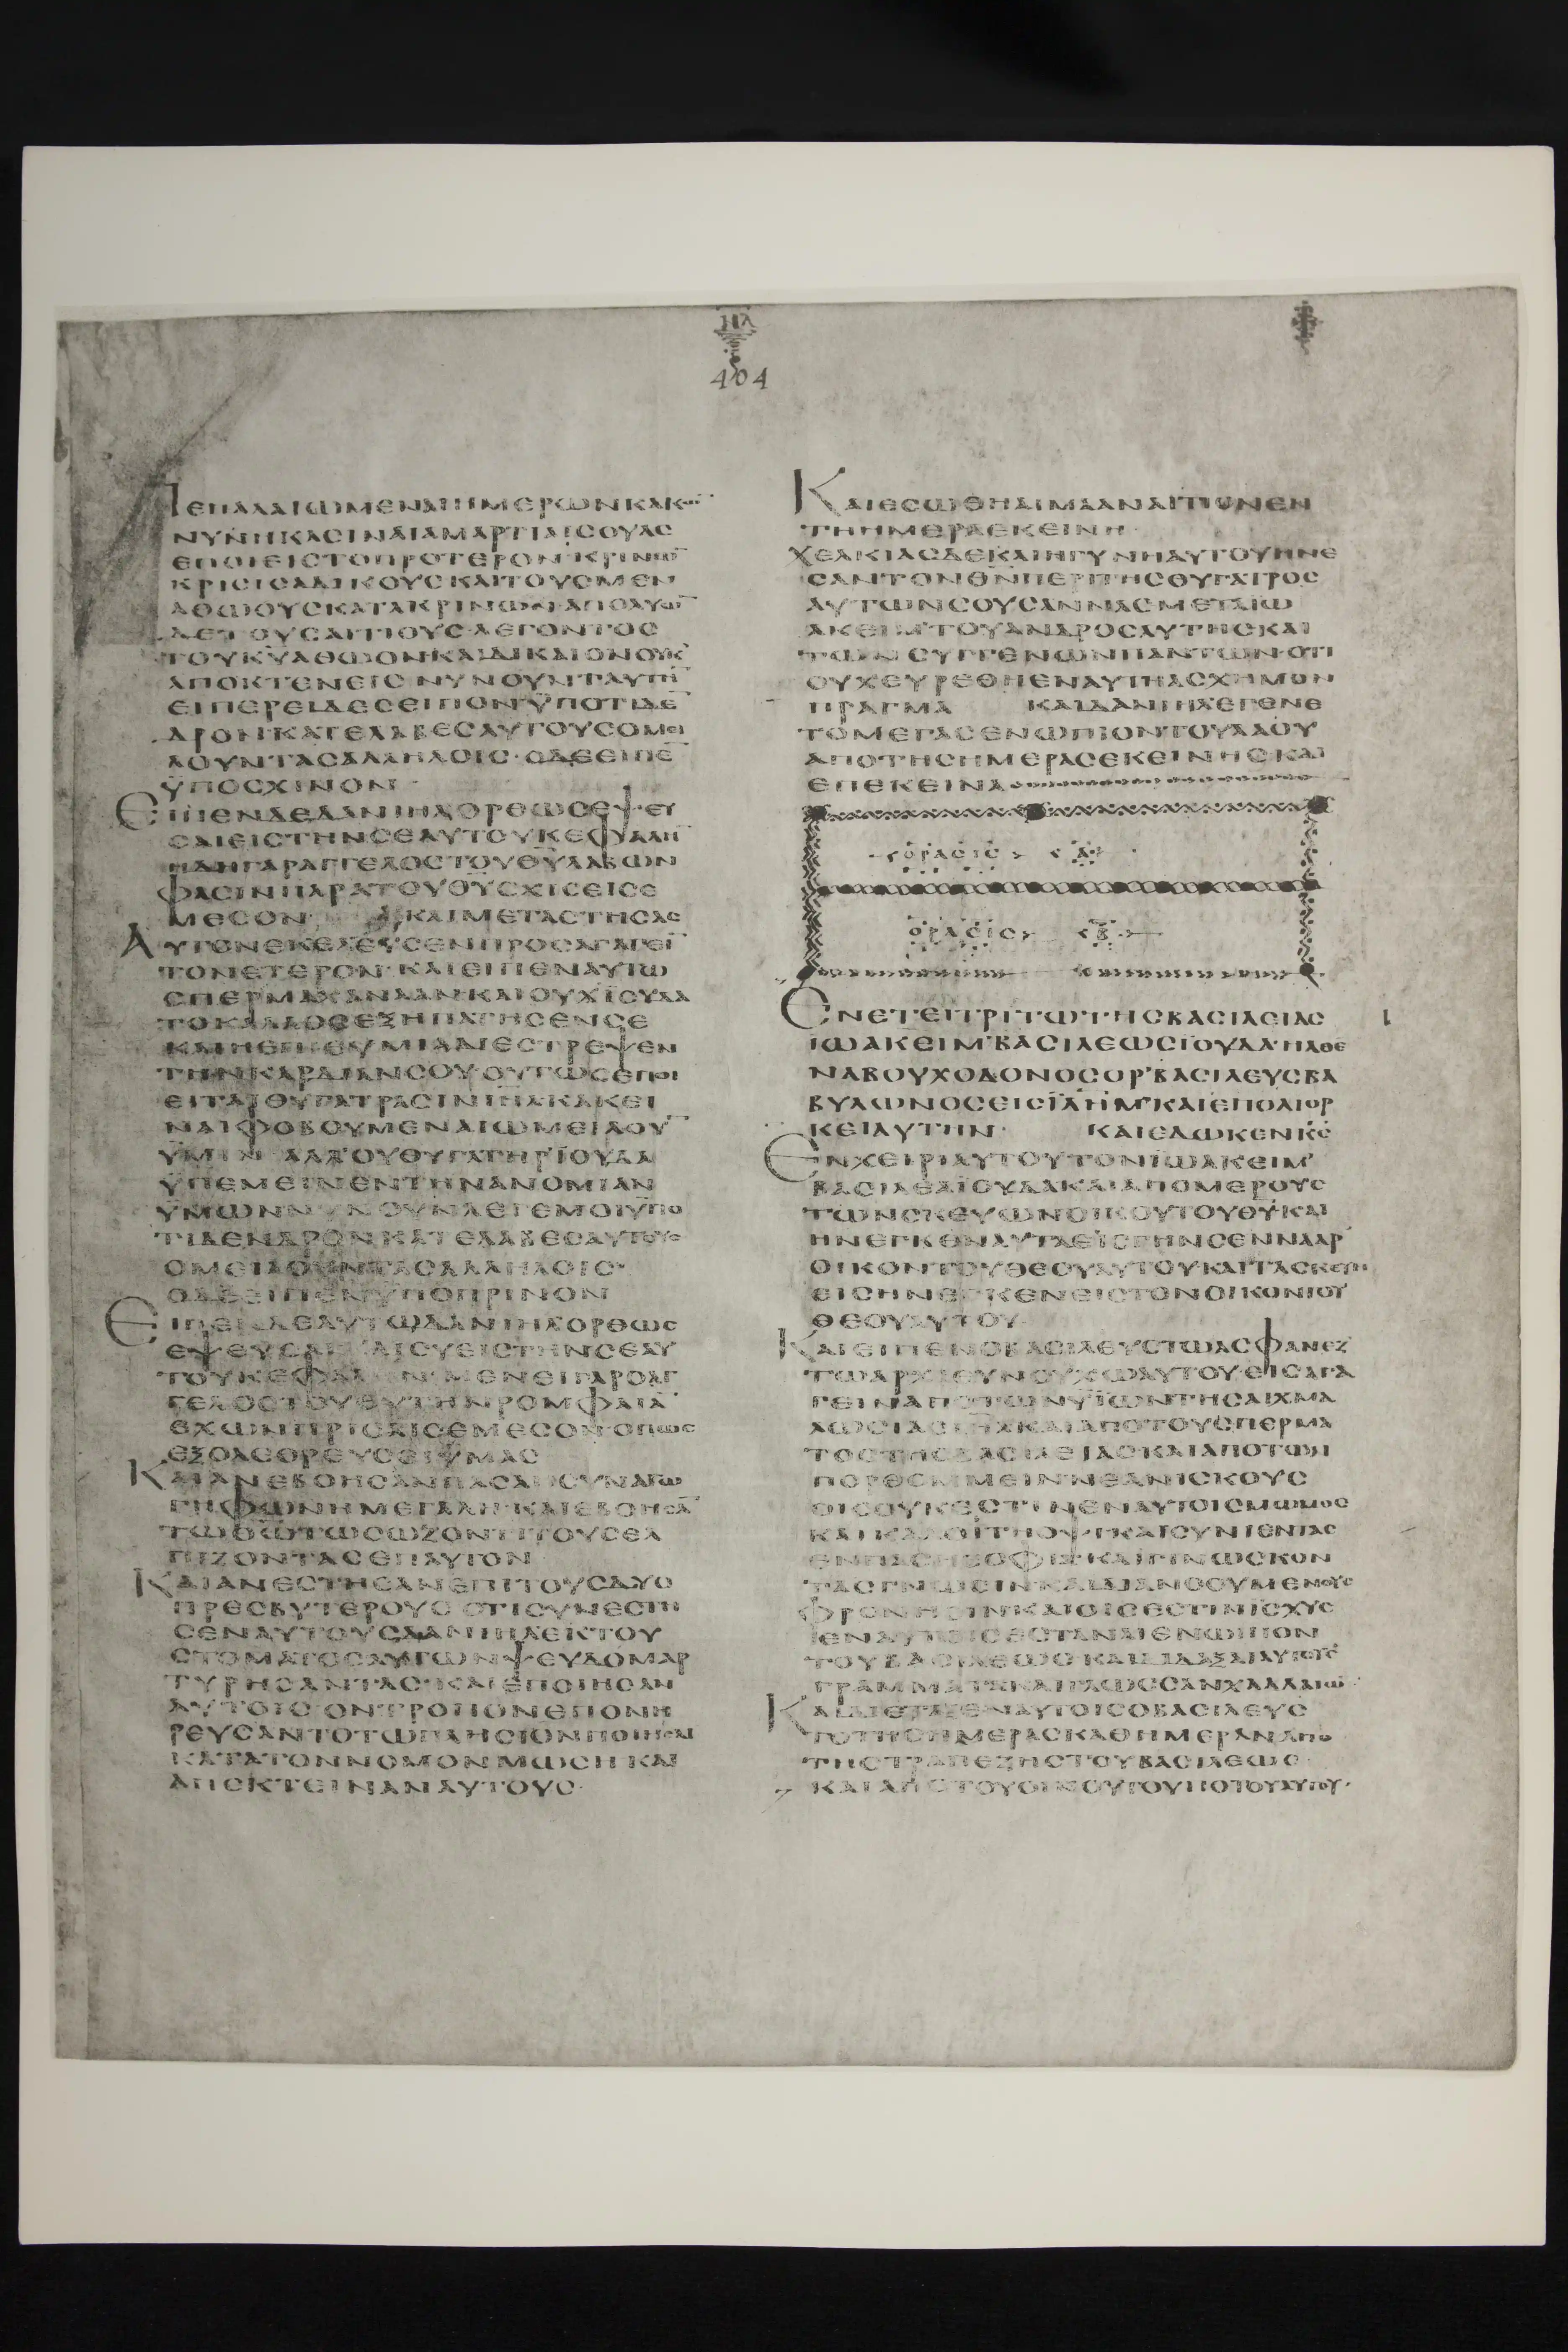 404
ΠΕΠΑΛΑΙΩΜΕΝΑΙ ΗΜΕΡΩΝ ΚΑΚΩ̅
ΝΥΝ ΗΚΑΣΙΝ ΑΙ ΑΜΑΡΤΙΑΙ ΣΟΥ ΑΣ
ΕΠΟΙΕΙΣ ΤΟ ΠΡΟΤΕΡΟΝ ΚΡΙΝΩ̅
ΚΡΙΣΙΣ ΑΔΙΚΟΥΣ ΚΑΙ ΤΟΥΣ ΜΕΝ
ΑΘΩΟΥΣ ΚΑΤΑΚΡΙΝΩΝ ΑΠΟΛΥΩ̅
ΔΕ ΤΟΥΣ ΑΙΤΙΟΥΣ ΛΕΓΟΝΤΟΣ
ΤΟΥ Κ̅Υ̅ ΑΘΩΟΝ ΚΑΙ ΔΙΚΑΙΟΝ ΟΥΚ
ΑΠΟΚΤΕΝΕΙΣ ΝΥΝ ΟΥΝ ΤΑΥΤΗ̅
ΕΙΠΕΡ ΕΙΔΕΣ ΕΙΠΟΝ ΫΠΟ ΤΙ ΔΕ̅
ΔΡΟΝ ΚΑΤΕΛΑΒΕΣ ΑΥΤΟΥΣ ΟΜΕΙ
ΛΟΥΝΤΑΣ ΑΛΛΗΛΟΙΣ· Ο ΔΕ ΕΙΠΕ̅
ΫΠΟ ΣΧΙΝΟΝ
ΕΙΠΕΝ ΔΕ ΔΑΝΙΗΛ ΟΡΘΩΣ ΕΨΕΥ
ΣΑΙ ΕΙΣ ΤΗΝ ΣΕΑΥΤΟΥ ΚΕΦΑΛΗ̅
ΗΔΗ ΓΑΡ ΑΓΓΕΛΟΣ ΤΟΥ Θ̅Υ̅ ΛΑΒΩΝ
ΦΑΣΙΝ ΠΑΡΑ ΤΟΥ Θ̅Υ̅ ΣΧΙΣΕΙ ΣΕ
ΜΕΣΟΝ ΚΑΙ ΜΕΤΑΣΤΗΣΑΣ
ΑΥΤΟΝ ΕΚΕΛΕΥΣΕΝ ΠΡΟΣΑΓΑΓΕΙ̅
ΤΟΝ ΕΤΕΡΟΝ· ΚΑΙ ΕΙΠΕΝ ΑΥΤΩ
ΣΠΕΡΜΑ ΧΑΝΑΑΝ ΚΑΙ ΟΥΧ ΪΟΥΔΑ
ΤΟ ΚΑΛΛΟΣ ΕΞΗΠΑΤΗΣΕΝ ΣΕ
ΚΑΙ Η ΕΠΙΘΥΜΙΑ ΔΙΕΣΤΡΕΨΕΝ
ΤΗΝ ΚΑΡΔΙΑΝ ΣΟΥ ΟΥΤΩΣ ΕΠΟΙ
ΕΙΤΑΙ ΘΥΓΑΤΡΑΣΙΝ ΙΗ̅Λ̅ ΚΑΚΕΙ
ΝΑΙ ΦΟΒΟΥΜΕΝΑΙ ΩΜΕΙΛΟΥ̅
ΫΜΙΝ ΑΛΛ' ΟΥ ΘΥΓΑΤΗΡ ΪΟΥΔΑ
ΫΠΕΜΕΙΝΕΝ ΤΗΝ ΑΝΟΜΙΑΝ
ΫΜΩΝ ΝΥΝ ΟΥΝ ΛΕΓΕ ΜΟΙ ΫΠΟ
ΤΙ ΔΕΝΔΡΟΝ ΚΑΤΕΛΑΒΕΣ ΑΥΤΟΥΣ
ΟΜΕΙΛΟΥΝΤΑΣ ΑΛΛΗΛΟΙΣ·
Ο ΔΕ ΕΙΠΕΝ ΫΠΟ ΠΡΙΝΟΝ
ΕΙΠΕΝ ΔΕ ΑΥΤΩ ΔΑΝΙΗΛ ΟΡΘΩΣ
ΕΨΕΥΣΑΙ ΚΑΙ ΣΥ ΕΙΣ ΤΗΝ ΣΕΑΥ
ΤΟΥ ΚΕΦΑΛΗΝ· ΜΕΝΕΙ ΓΑΡ Ο ΑΓ
ΓΕΛΟΣ ΤΟΥ Θ̅Υ̅ ΤΗΝ ΡΟΜΦΑΙΑ̅
ΕΧΩΝ ΠΡΙΣΑΙ ΣΕ ΜΕΣΟΝ ΟΠΩΣ
ΕΞΟΛΕΘΡΕΥΣΕΙ ΫΜΑΣ
ΚΑΙ ΑΝΕΒΟΗΣΑΝ ΠΑΣΑ Η ΣΥΝΑΓΩ
ΓΗ ΦΩΝΗ ΜΕΓΑΛΗ· ΚΑΙ ΕΒΟΗΣΑ̅
ΤΩ Θ̅Ω̅ ΤΩ ΣΩΖΟΝΤΙ ΤΟΥΣ ΕΛ
ΠΙΖΟΝΤΑΣ ΕΠ ΑΥΤΟΝ
ΚΑΙ ΑΝΕΣΤΗΣΑΝ ΕΠΙ ΤΟΥΣ ΔΥΟ
ΠΡΕΣΒΥΤΕΡΟΥΣ ΟΤΙ ΣΥΝΕΣΤΗ
ΣΕΝ ΑΥΤΟΥΣ ΔΑΝΙΗΛ ΕΚ ΤΟΥ
ΣΤΟΜΑΤΟΣ ΑΥΤΩΝ ΨΕΥΔΟΜΑΡ
ΤΥΡΗΣΑΝΤΑΣ· ΚΑΙ ΕΠΟΙΗΣΑΝ
ΑΥΤΟΙΣ ΟΝ ΤΡΟΠΟΝ ΕΠΟΝΗ
ΡΕΥΣΑΝΤΟ ΤΩ ΠΛΗΣΙΟΝ ΠΟΙΗΣΑΙ
ΚΑΤΑ ΤΟΝ ΝΟΜΟΝ ΜΩΣΗ ΚΑΙ
ΑΠΕΚΤΕΙΝΑΝ ΑΥΤΟΥΣ·
ΚΑΙ ΕΣΩΘΗ ΑΙΜΑ ΑΝΑΙΤΙΟΝ ΕΝ
ΤΗ ΗΜΕΡΑ ΕΚΕΙΝΗ
ΧΕΛΚΙΑΣ ΔΕ ΚΑΙ Η ΓΥΝΗ ΑΥΤΟΥ ΗΝΕ
ΣΑΝ ΤΟΝ Θ̅Ν̅ ΠΕΡΙ ΤΗΣ ΘΥΓΑΤΡΟΣ
ΑΥΤΩΝ ΣΟΥΣΑΝΝΑΣ ΜΕΤΑ ΙΩ
ΑΚΕΙΜ ΤΟΥ ΑΝΔΡΟΣ ΑΥΤΗΣ ΚΑΙ
ΤΩΝ ΣΥΓΓΕΝΩΝ ΠΑΝΤΩΝ ΟΤΙ
ΟΥΧ ΕΥΡΕΘΗ ΕΝ ΑΥΤΗ ΑΣΧΗΜΟΝ
ΠΡΑΓΜΑ ΚΑΙ ΔΑΝΙΗΛ ΕΓΕΝΕ
ΤΟ ΜΕΓΑΣ ΕΝΩΠΙΟΝ ΤΟΥ ΛΑΟΥ
ΑΠΟ ΤΗΣ ΗΜΕΡΑΣ ΕΚΕΙΝΗΣ ΚΑΙ
ΕΠΕΚΕΙΝΑ
ΟΡΑΣΙΣ Α
ΟΡΑΣΙΣ Β
ΕΝ ΕΤΕΙ ΤΡΙΤΩ ΤΗΣ ΒΑΣΙΛΕΙΑΣ
ΙΩΑΚΕΙΜ ΒΑΣΙΛΕΩΣ ΪΟΥΔΑ· ΗΛΘΕ
ΝΑΒΟΥΧΟΔΟΝΟΣΟΡ ΒΑΣΙΛΕΥΣ ΒΑ
ΒΥΛΩΝΟΣ ΕΙΣ Ϊ̅Λ̅Η̅Μ̅ ΚΑΙ ΕΠΟΛΙΟΡ
ΚΕΙ ΑΥΤΗΝ· ΚΑΙ ΕΔΩΚΕΝ Κ̅Σ̅
ΕΝ ΧΕΙΡΙ ΑΥΤΟΥ ΤΟΝ ΙΩΑΚΕΙΜ
ΒΑΣΙΛΕΑ ΪΟΥΔΑ ΚΑΙ ΑΠΟ ΜΕΡΟΥΣ
ΤΩΝ ΣΚΕΥΩΝ ΟΙΚΟΥ ΤΟΥ Θ̅Υ̅ ΚΑΙ
ΗΝΕΓΚΕΝ ΑΥΤΑ ΕΙΣ ΓΗΝ ΣΕΝΝΑΑΡ
ΟΙΚΟΝ ΤΟΥ ΘΕΟΥ ΑΥΤΟΥ ΚΑΙ ΤΑ ΣΚΕΥΗ
ΕΙΣΗΝΕΓΚΕΝ ΕΙΣ ΤΟΝ ΟΙΚΟΝ ΤΟΥ
ΘΕΟΥ ΑΥΤΟΥ
ΚΑΙ ΕΙΠΕΝ Ο ΒΑΣΙΛΕΥΣ ΤΩ ΑΣΦΑΝΕΖ
ΤΩ ΑΡΧΙΕΥΝΟΥΧΩ ΑΥΤΟΥ ΕΙΣΑΓΑ
ΓΕΙΝ ΑΠΟ ΤΩΝ ΥΪΩΝ ΤΗΣ ΑΙΧΜΑ
ΛΩΣΙΑΣ Ι̅Η̅Λ̅ ΚΑΙ ΑΠΟ ΤΟΥ ΣΠΕΡΜΑ
ΤΟΣ ΤΗΣ ΒΑΣΙΛΕΙΑΣ ΚΑΙ ΑΠΟ ΤΩΝ
ΠΟΡΘΟΜΜΕΙΝ ΝΕΑΝΙΣΚΟΥΣ
ΟΙΣ ΟΥΚ ΕΣΤΙΝ ΕΝ ΑΥΤΟΙΣ ΜΩΜΟΣ
ΚΑΙ ΚΑΛΟΙ ΤΗ ΟΨΕΙ ΚΑΙ ΣΥΝΙΕΝΤΑΣ
ΕΝ ΠΑΣΗ ΣΟΦΙΑ ΚΑΙ ΓΙΝΩΣΚΟΝ
ΤΑΣ ΓΝΩΣΙΝ ΚΑΙ ΔΙΑΝΟΟΥΜΕΝΟΥΣ
ΦΡΟΝΗΣΙΝ ΚΑΙ ΟΙΣ ΕΣΤΙΝ ΪΣΧΥΣ
ΕΝ ΑΥΤΟΙΣ ΕΣΤΑΝΑΙ ΕΝΩΠΙΟΝ
ΤΟΥ ΒΑΣΙΛΕΩΣ ΚΑΙ ΔΙΔΑΞΑΙ ΑΥΤΟΥΣ
ΓΡΑΜΜΑΤΑ ΚΑΙ ΓΛΩΣΣΑΝ ΧΑΛΔΑΙΩ̅
ΚΑΙ ΔΙΕΤΑΞΕΝ ΑΥΤΟΙΣ Ο ΒΑΣΙΛΕΥΣ
ΤΟ ΤΗΣ ΗΜΕΡΑΣ ΚΑΘ ΗΜΕΡΑΝ ΑΠΟ
ΤΗΣ ΤΡΑΠΕΖΗΣ ΤΟΥ ΒΑΣΙΛΕΩΣ
ΚΑΙ ΑΠΟ ΤΟΥ ΟΙΝΟΥ ΤΟΥ ΠΟΤΟΥ ΑΥΤΟΥ·